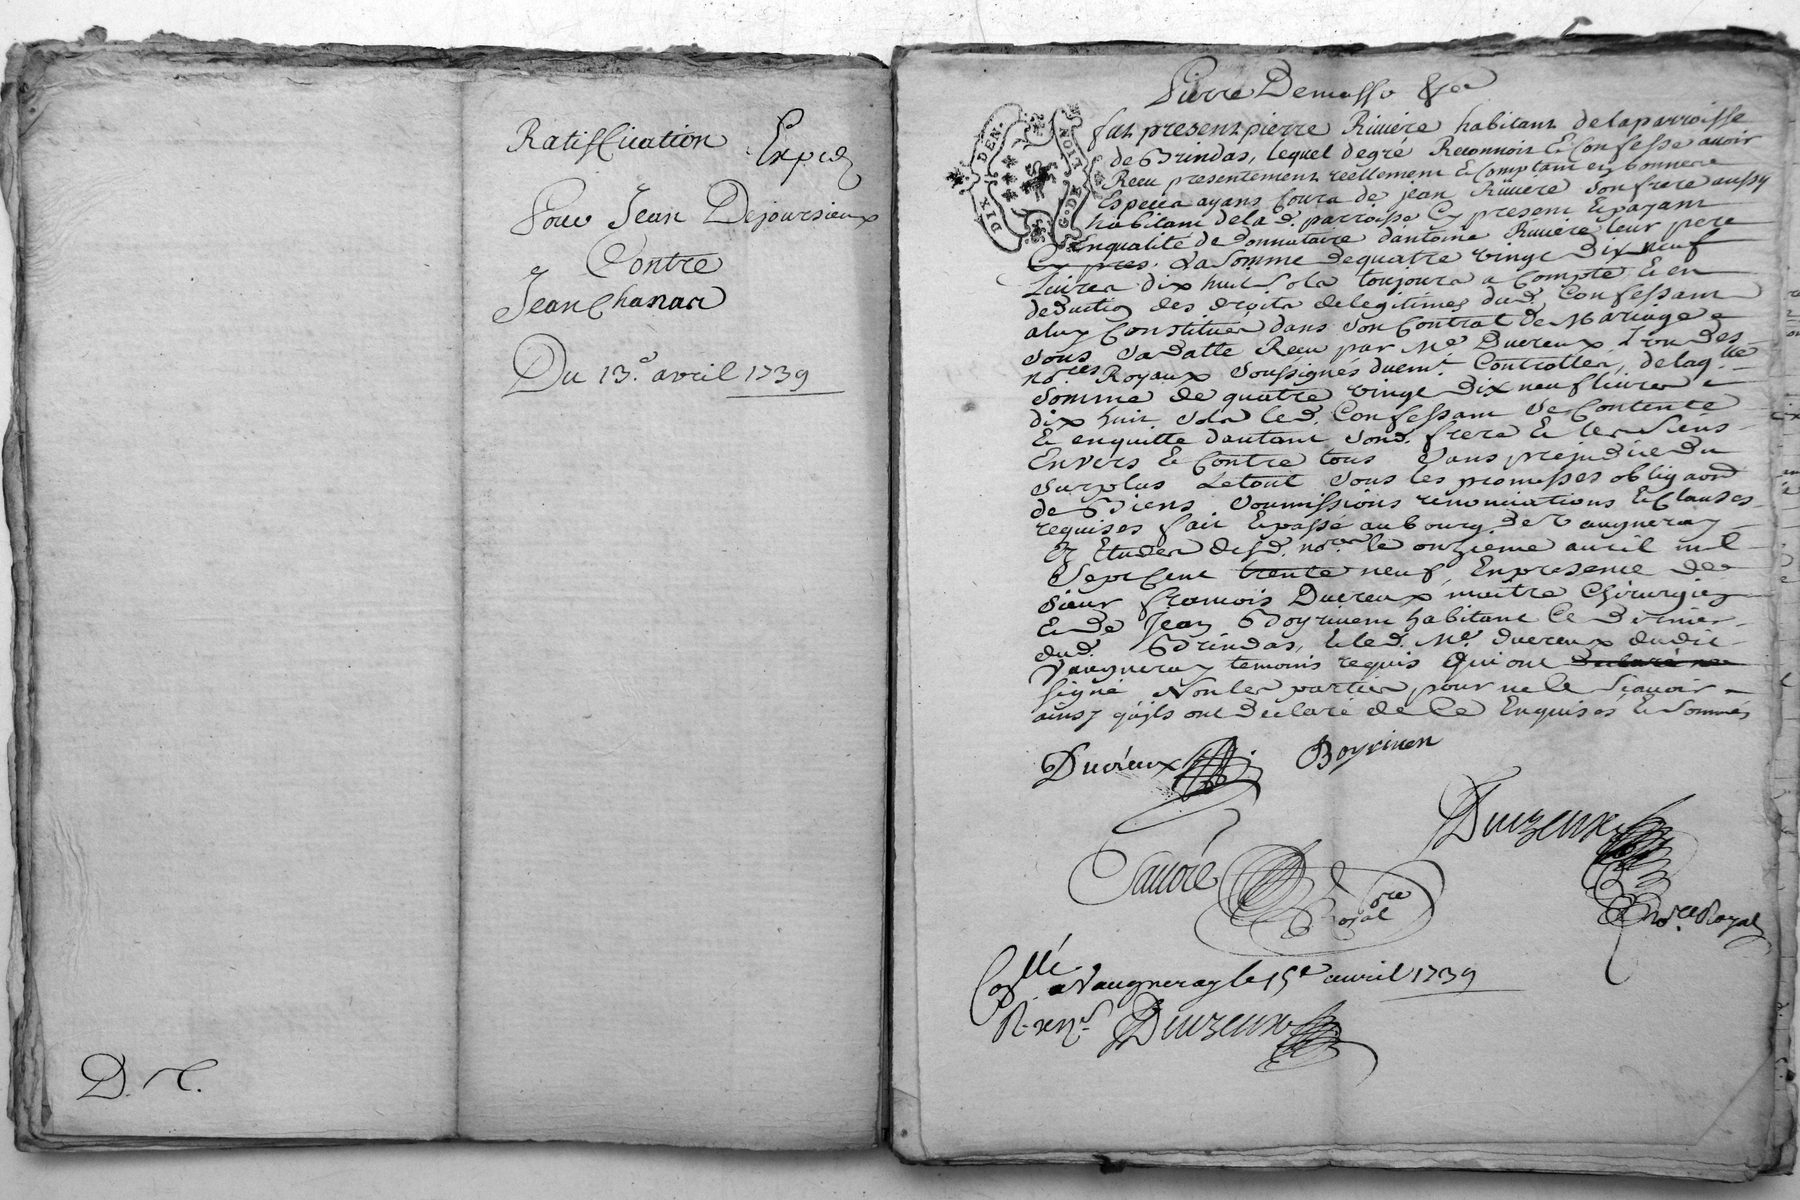 Ratiffication Expié
Pour Jean Dejoursieux
Contre
Jean Chanar
Du 13.e avril 1739
D. r.
Pierre Demasso &ca
GEN. DE LION
DIX DEN.
fut present pierre Riviere habitant de la parroisse
de Brindas, lequel de gré Reconnoit & Confesse avoir
Reçu presentement reellement & Comptant en bonnere
Especes ayans cours de jean Riviere son frere aussy
habitant de la d. parroisse Cy present & payant
Enqualité de donnataire d'antoine Riviere leur pere
Cy pres. La Somme de quatre vingt Dix neuf
Livres dix huit sols toujours a Compte & en
deduction des droits de legitimes dud. Confessant
a luy Constitués dans son Contrat de Mariage
sous sa datte Recu par Me. Ducreux L'un des
no.res Royaux soussignés duemt. Controllér, de laq.lle
Somme de quatre vingt Dix neuf livres
dix huit sols led. Confessant Se Contente
& en quitte d'autant Sond. frere & les Siens
Envers & Contre tous Sans prejudice du
Surplus Letout Sous les promesses obligaons
de Biens Soumissions renonciations & Clauses
requises fait & passé au bourg de Vaugneray
Es Etudes desd. no.res le onzieme avril mil
Sept Cent trente neuf, En presence de
Sieur francois Ducreux maitre Chirurgien
& de Jean Boyrivent habitant Ce dernier
dud. Brindas, & led. Me. Ducreux dudit
Vaugneray temoins requis Qui ont declaré ne
signé Non les parties pour ne le Scavoir
ainsy qu'ils ont Declaré de Ce Enquises & Sommés
Ducreux Boyriven
Ducreux
Sauvré
no.re Royal
no.re Royal
Con.llé a Vaugneray le 15e avril 1739
R. Ducreux